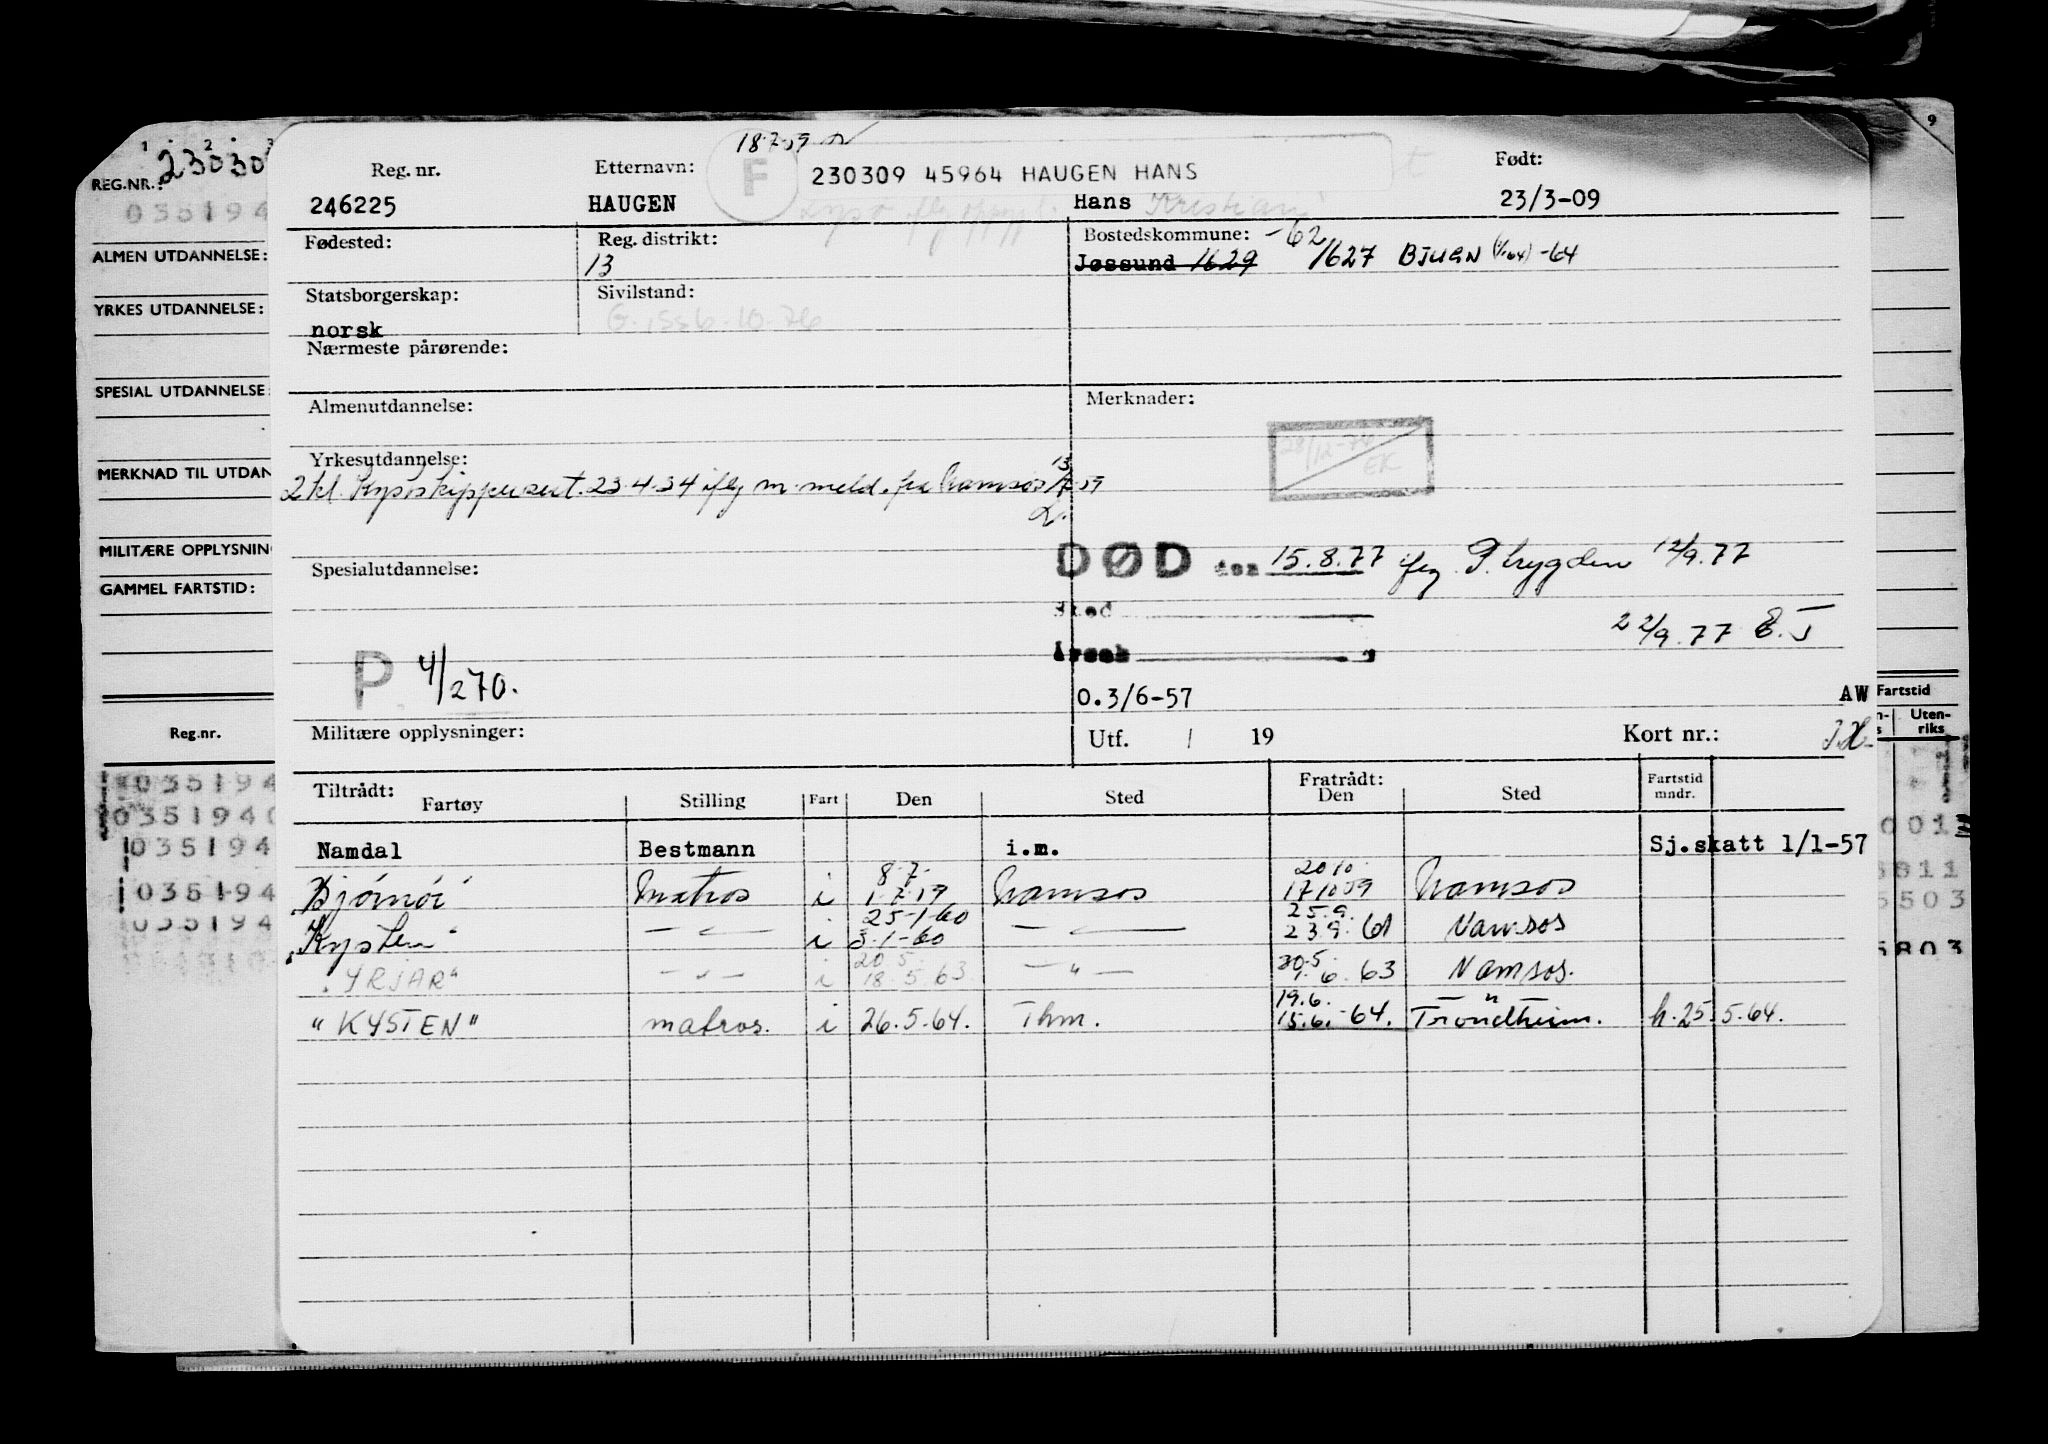 1 2 3
REG.NR.: 23030
035194
ALMEN UTDANNELSE:
YRKES UTDANNELSE:
SPESIAL UTDANNELSE:
MERKNAD TIL UTDAN
MILITÆRE OPPLYSNIN
GAMMEL FARTSTID:
Reg.nr.
035194
035194
035194
035194
035194
9
Fartstid
Uten-
riks
18.7.59
Reg. nr. Etternavn: F 230309 45964 HAUGEN HANS Født:
246225 HAUGEN Hans Kristian 23/3-09
Fødested: Reg. distrikt: Bostedskommune: -62
13 Jøssund 1629 1627 BJUGN (1/1-64) -64
Statsborgerskap: Sivilstand:
norsk G. 1556-10.76
Nærmeste pårørende:
Almenutdannelse: Merknader:
28/12-76
EK
Yrkesutdannelse:
2 kl. Kystskippersert. 23-4-34 iflg m. meld. fra Namsos 13/7-59
Spesialutdannelse:
DØD den 15.8.77 iflg P. trygden 12/9.77
Sted
22/9.77
Årsak
P 4/270.
0.3/6-57 AW
Militære opplysninger: Utf. / 19 Kort nr.:
Tiltrådt: Fratrådt:
Fartøy Stilling Fart Den Sted Den Sted Fartstid mndr.
Namdal Bestmann i.m. Sj.skatt 1/1-57
8.7. 20 10.
"Bjørnör" Matros i 1.7.59 Namsos 17.10.59 Namsos
25-1-60 25.9.
"Kysten" — " — i 3.1-60 — " — 23.9.61 Namsos
20.5. 30.5.
"YRJAR" — " — i 18.5.63 — " — 1.6.63 Namsos.
19.6. — " —
"KYSTEN" matros. i 26.5.64. Thm. 15.6.-64. Trondheim. h.25.5.64.